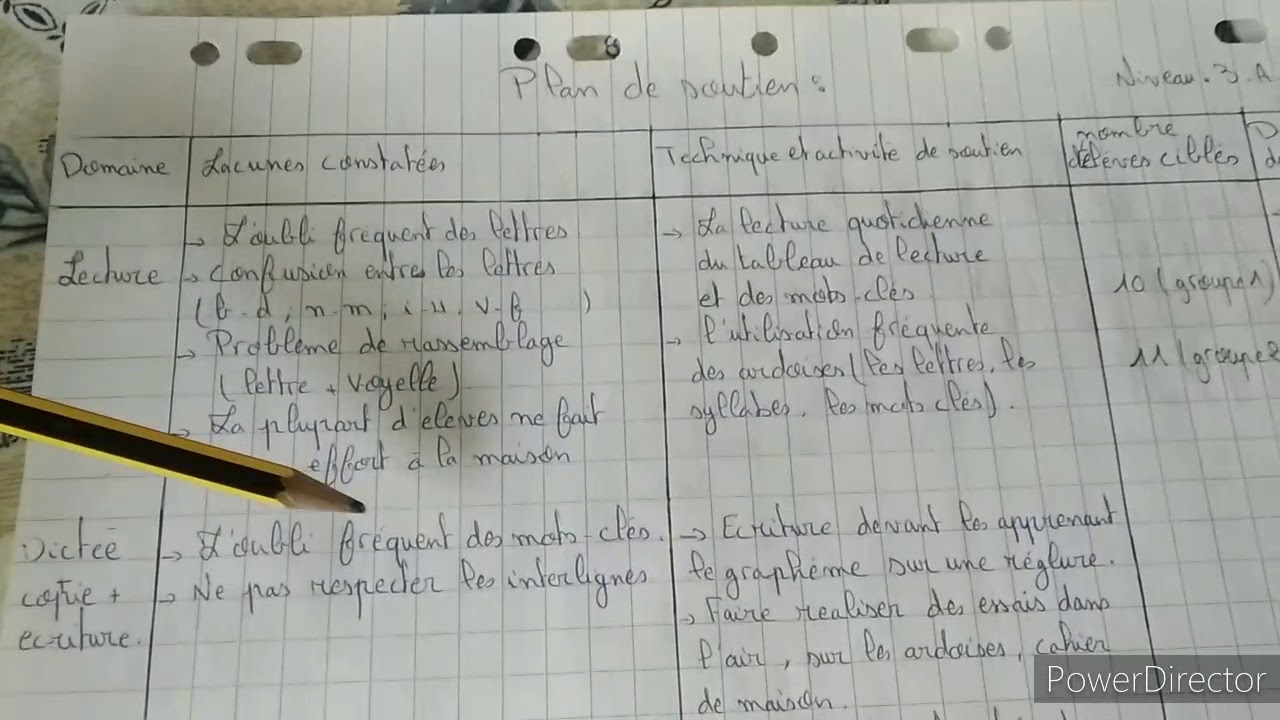 8
Plan de soutien :
Niveau. 3. A
Domaine
Lacunes constatées
Technique et activité de soutien
nombre
d'élèves ciblés
Lecture
→ L'oubli fréquent des lettres
→ Confusion entre les lettres
(b-d, n-m, i-u, v-f )
→ Problème de rassemblage
(lettre + voyelle)
→ La plupart d'elèves ne fait
effort à la maison
→ La lecture quotidienne
du tableau de lecture
et des mots clés
→ l'utilisation fréquente
des ardoises (les lettres, les
syllabes, les mots clés).
10 (groupe 1)
11 (groupe 2
Dictée
copie +
ecriture.
→ L'oubli fréquent des mots clés.
→ Ne pas respecter les interlignes
→ Ecriture devant les apprenant
le graphème sur une réglure.
→ Faire realiser des essais dans
l'air, sur les ardoises, cahier
de maison.
PowerDirector